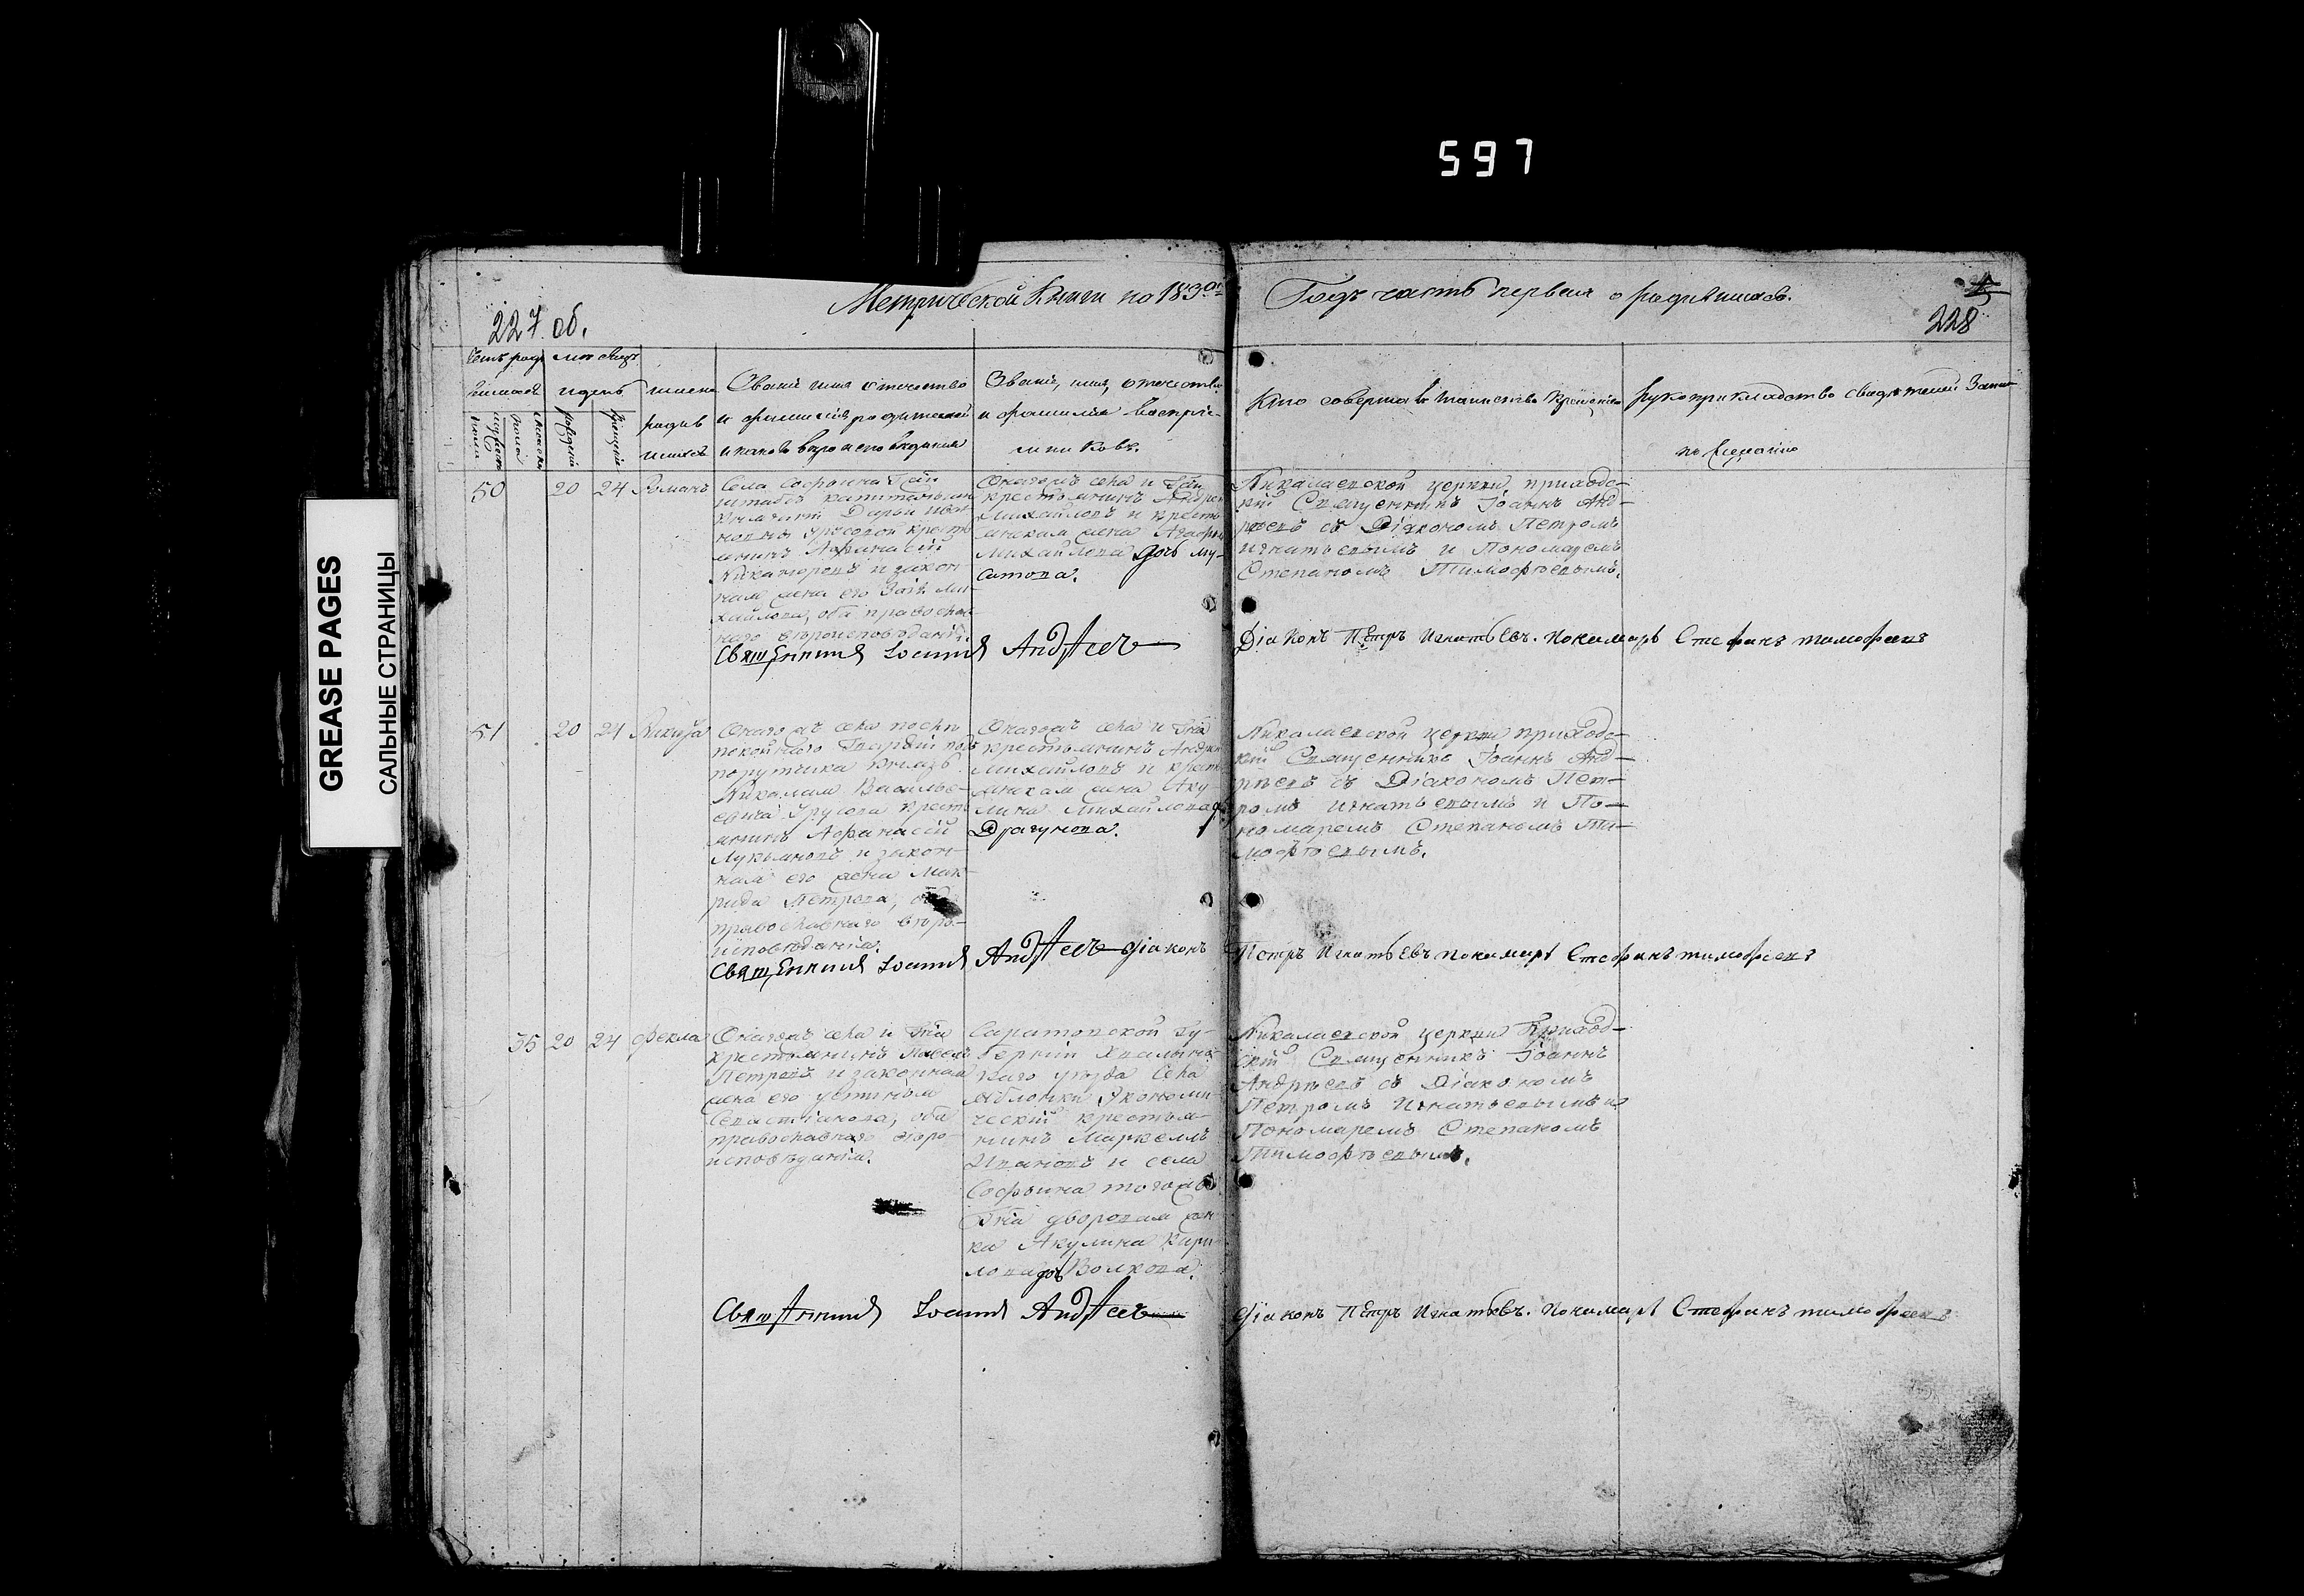 597
GREASE PAGES
САЛЬНЫЕ СТРАНИЦЫ
227 об.
Метрической Книги на 1839й
Годъ часть первая о родившихся.
228
имена
родив
шихся
Званіе имя отечество
и фамилія родителей
и какова вероисповеданія
Званіе, имя, отечество
и фамилія воспріе-
мниковъ.
Кто совершалъ таинство крещенія
Рукоприкладство свидетелей Записи
по желанію
50
20
24
Романъ
Села Софьина Г-жи
штабсъ капитанши
Княгини Дарьи Ива
новны Урусовой кресть
янинъ Афанасій
Никаноровъ и закон
ная жена его Зоія Ми-
хайлова, оба православ
наго вѣроисповѣданія.
Онагожъ села и Г-жи
крестьянинъ Андрей
Михайловъ и кресть
янская жена Агафья
Михайлова дочь Му-
сатова.
Николаевской церкви приходс-
кій Священникъ Іоаннъ Анд-
рѣевъ съ Діакономъ Петромъ
Игнатьевымъ и Пономаремъ
Степаномъ Тимофѣевымъ.
Священникъ Іоаннъ Андреевъ
Діаконъ Петръ Игнатьевъ. Пономарь Стефанъ Тимофеевъ
51
20
24
Никита
Онагожъ села послѣ
покойнаго Гвардіи под
порутчика Князь
Николая Василье-
вича Урусова крест
янинъ Афанасій
Лукьяновъ и закон-
ная его жена Мак-
рида Петрова, оба
православнаго вѣро-
исповѣданія.
Онагожъ села и Г-на
крестьянинъ Андрей
Михайловъ и кресть
янская жена Аку
лина Михайлова
Драгунова.
Николаевской церкви приходс-
кій Священникъ Іоаннъ Анд-
рѣевъ съ Діакономъ Пет-
ромъ Игнатьевымъ и По-
номаремъ Степаномъ Ти-
мофѣевымъ.
Священникъ Іоаннъ Андреевъ діаконъ
Петръ Игнатьевъ пономарь Стефанъ тимофеевъ
35
20
24
Фекла
Онагожъ села и Г-на
крестьянинъ Павелъ
Петровъ и законная
жена его Устинья
Севастіанова, оба
православнаго вѣро-
исповѣданія.
Саратовской гу-
берніи Хвалынс
каго уѣзда Села
Яблонки Экономи
ческій крестья-
нинъ Маркеллъ
Ивановъ и села
Софьина тогожъ
Г-на дворовая жен
ка Акулина Кири
лова дочь Волкова.
Николаевской церкви Приход-
скій Священникъ Іоаннъ
Андрѣевъ съ Діакономъ
Петромъ Игнатьевымъ и
Пономаремъ Степаномъ
Тимофѣевымъ.
Священникъ Іоаннъ Андреевъ
діаконъ Петръ Игнатьевъ. Пономарь Стефанъ тимофеевъ